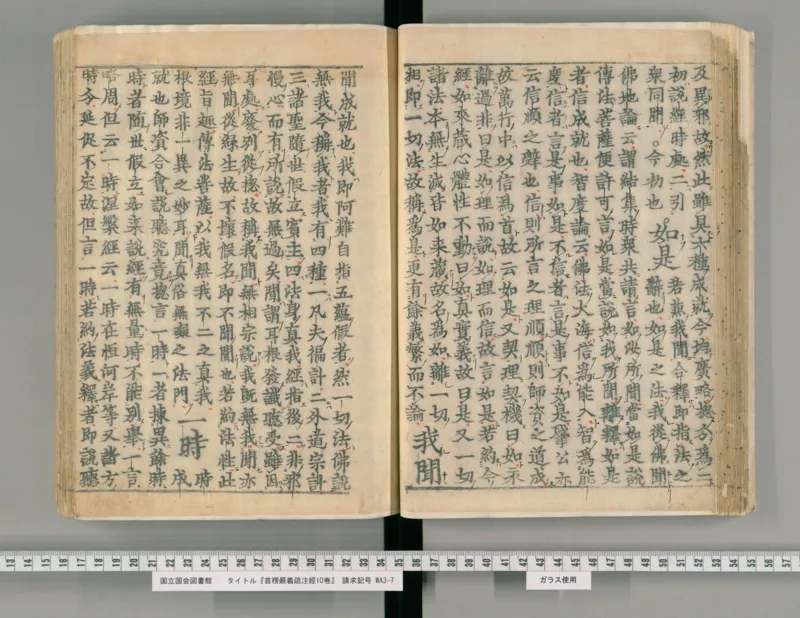 及異邪故然此雖具六種成就今均廣略揔分為二
初說經時處二引 如是 若兼我聞合釋即指法之
眾同聞。今初也。 辭也如是之法我從佛聞
佛地論云謂結集時眾共請言如汝所聞當如是說
傳法菩薩便許可言如是當說如我所聞離釋如是
者信成就也智度論云佛法大海信為能入智為能
度信者言是事如是不信者言是事不如是肇公亦
云信順之辭也信則所言之理順順則師資之道成
故萬行中以信為首故云如是又契理契機曰如
離過非曰是如理而說如理而信故言如是若約今
經如來藏心體性不動曰如真實義故曰是又一切
諸法本無生滅皆如來藏故名為如離一切
相即一切法故稱為是更有餘義繁而不論 我聞
聞成就也我即阿難自指五蘊假者然一切法佛說
無我今稱我者我有四種一凡夫徧計二外道宗計
三諸聖隨世假立賓主四法身真我經指後二非邪
慢心而有所說故無過矣聞謂耳根發識聽受雖因
耳處廢別從揔故稱我聞無相宗說我既無我聞亦
無聞從緣生故不壞假名即不聞聞也若約法性此
經旨趣傳法菩薩以我無我不二之真我 一時 時
根境非一異之妙耳聞真俗無礙之法門 成
就也師資合會說聽究竟揔言一時一者揀異餘時
時者隨世假立如來說經有無量時不能別舉一言
略周但云一時涅槃經云一時在恒河岸等又諸方
時分延促不定故但言一時若約法義釋者即說聽
13 14 15 16 17 18 19 20 21 22 23 24 25 26 27 28 29 30 31 32 33 34 35 36 37 38 39 40 41 42 43 44 45 46 47 48 49 50 51 52 53 54 55 56 57
国立国会図書館 タイトル『首楞嚴義疏注經10巻』 請求記号 WA3-7
ガラス使用